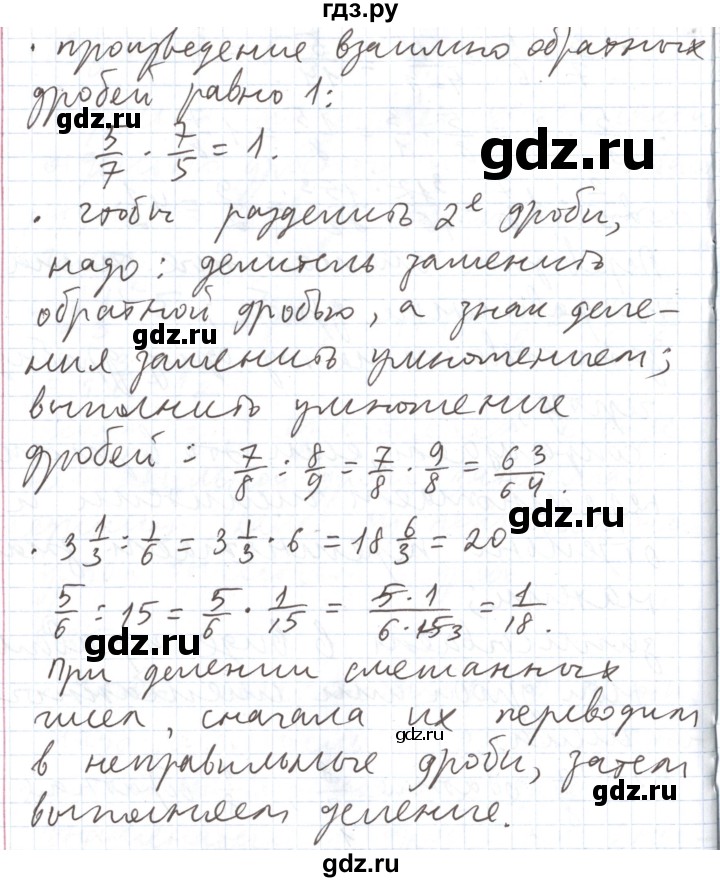 гдз.ру
· произведение взаимно обратных
дробей равно 1:
gdz.ru
gdz.ru
3/7 · 7/5 = 1.
· чтобы разделить 2е дроби,
надо: делитель заменить
обратной дробью, а знак деле-
gdz.ru
ния заменить умножением;
выполнить умножение
дробей: 7/8 : 8/9 = 7/8 · 9/8 = 63/64.
gdz.ru
· 3 1/3 : 1/6 = 3 1/3 · 6 = 18 6/3 = 20
5/6 : 15 = 5/6 · 1/15 = 5·1/6·15 3 = 1/18.
gdz.ru
При делении смешанных
чисел, сначала их переводим
gdz.ru
в неправильные дроби, затем
gdz.ru
выполняем деление.
gdz.ru